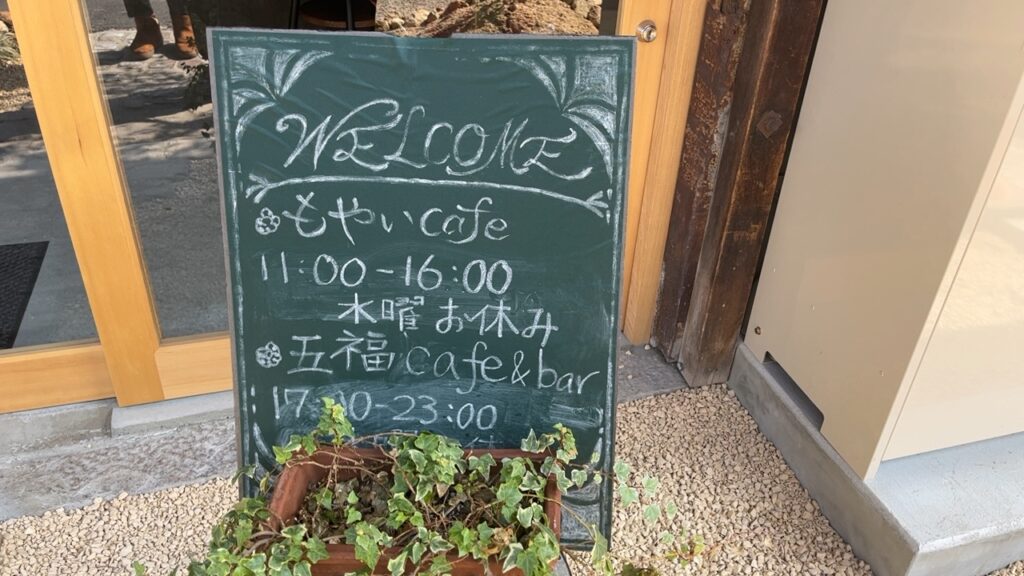 WELCOME
もやいcafe
11:00-16:00
水曜 お休み
五福 cafe&bar
-23:00